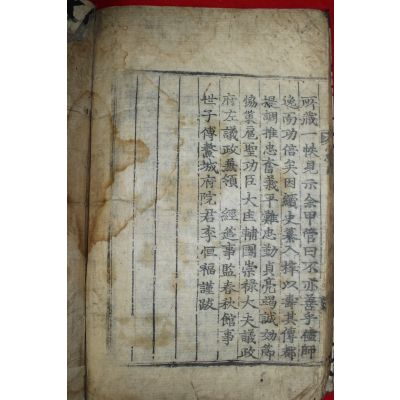 所藏一帙見示余甲管曰不亦善乎禮師
逸而功倍矣因緬史纂入梓以壽其傳都
提調推忠奮義平難忠勤貞亮竭誠効節
協策扈聖功臣大匡輔國崇祿大夫議政
府左議政兼領 經筵事監春秋館事
世子傅鰲城府院君李恒福謹跋